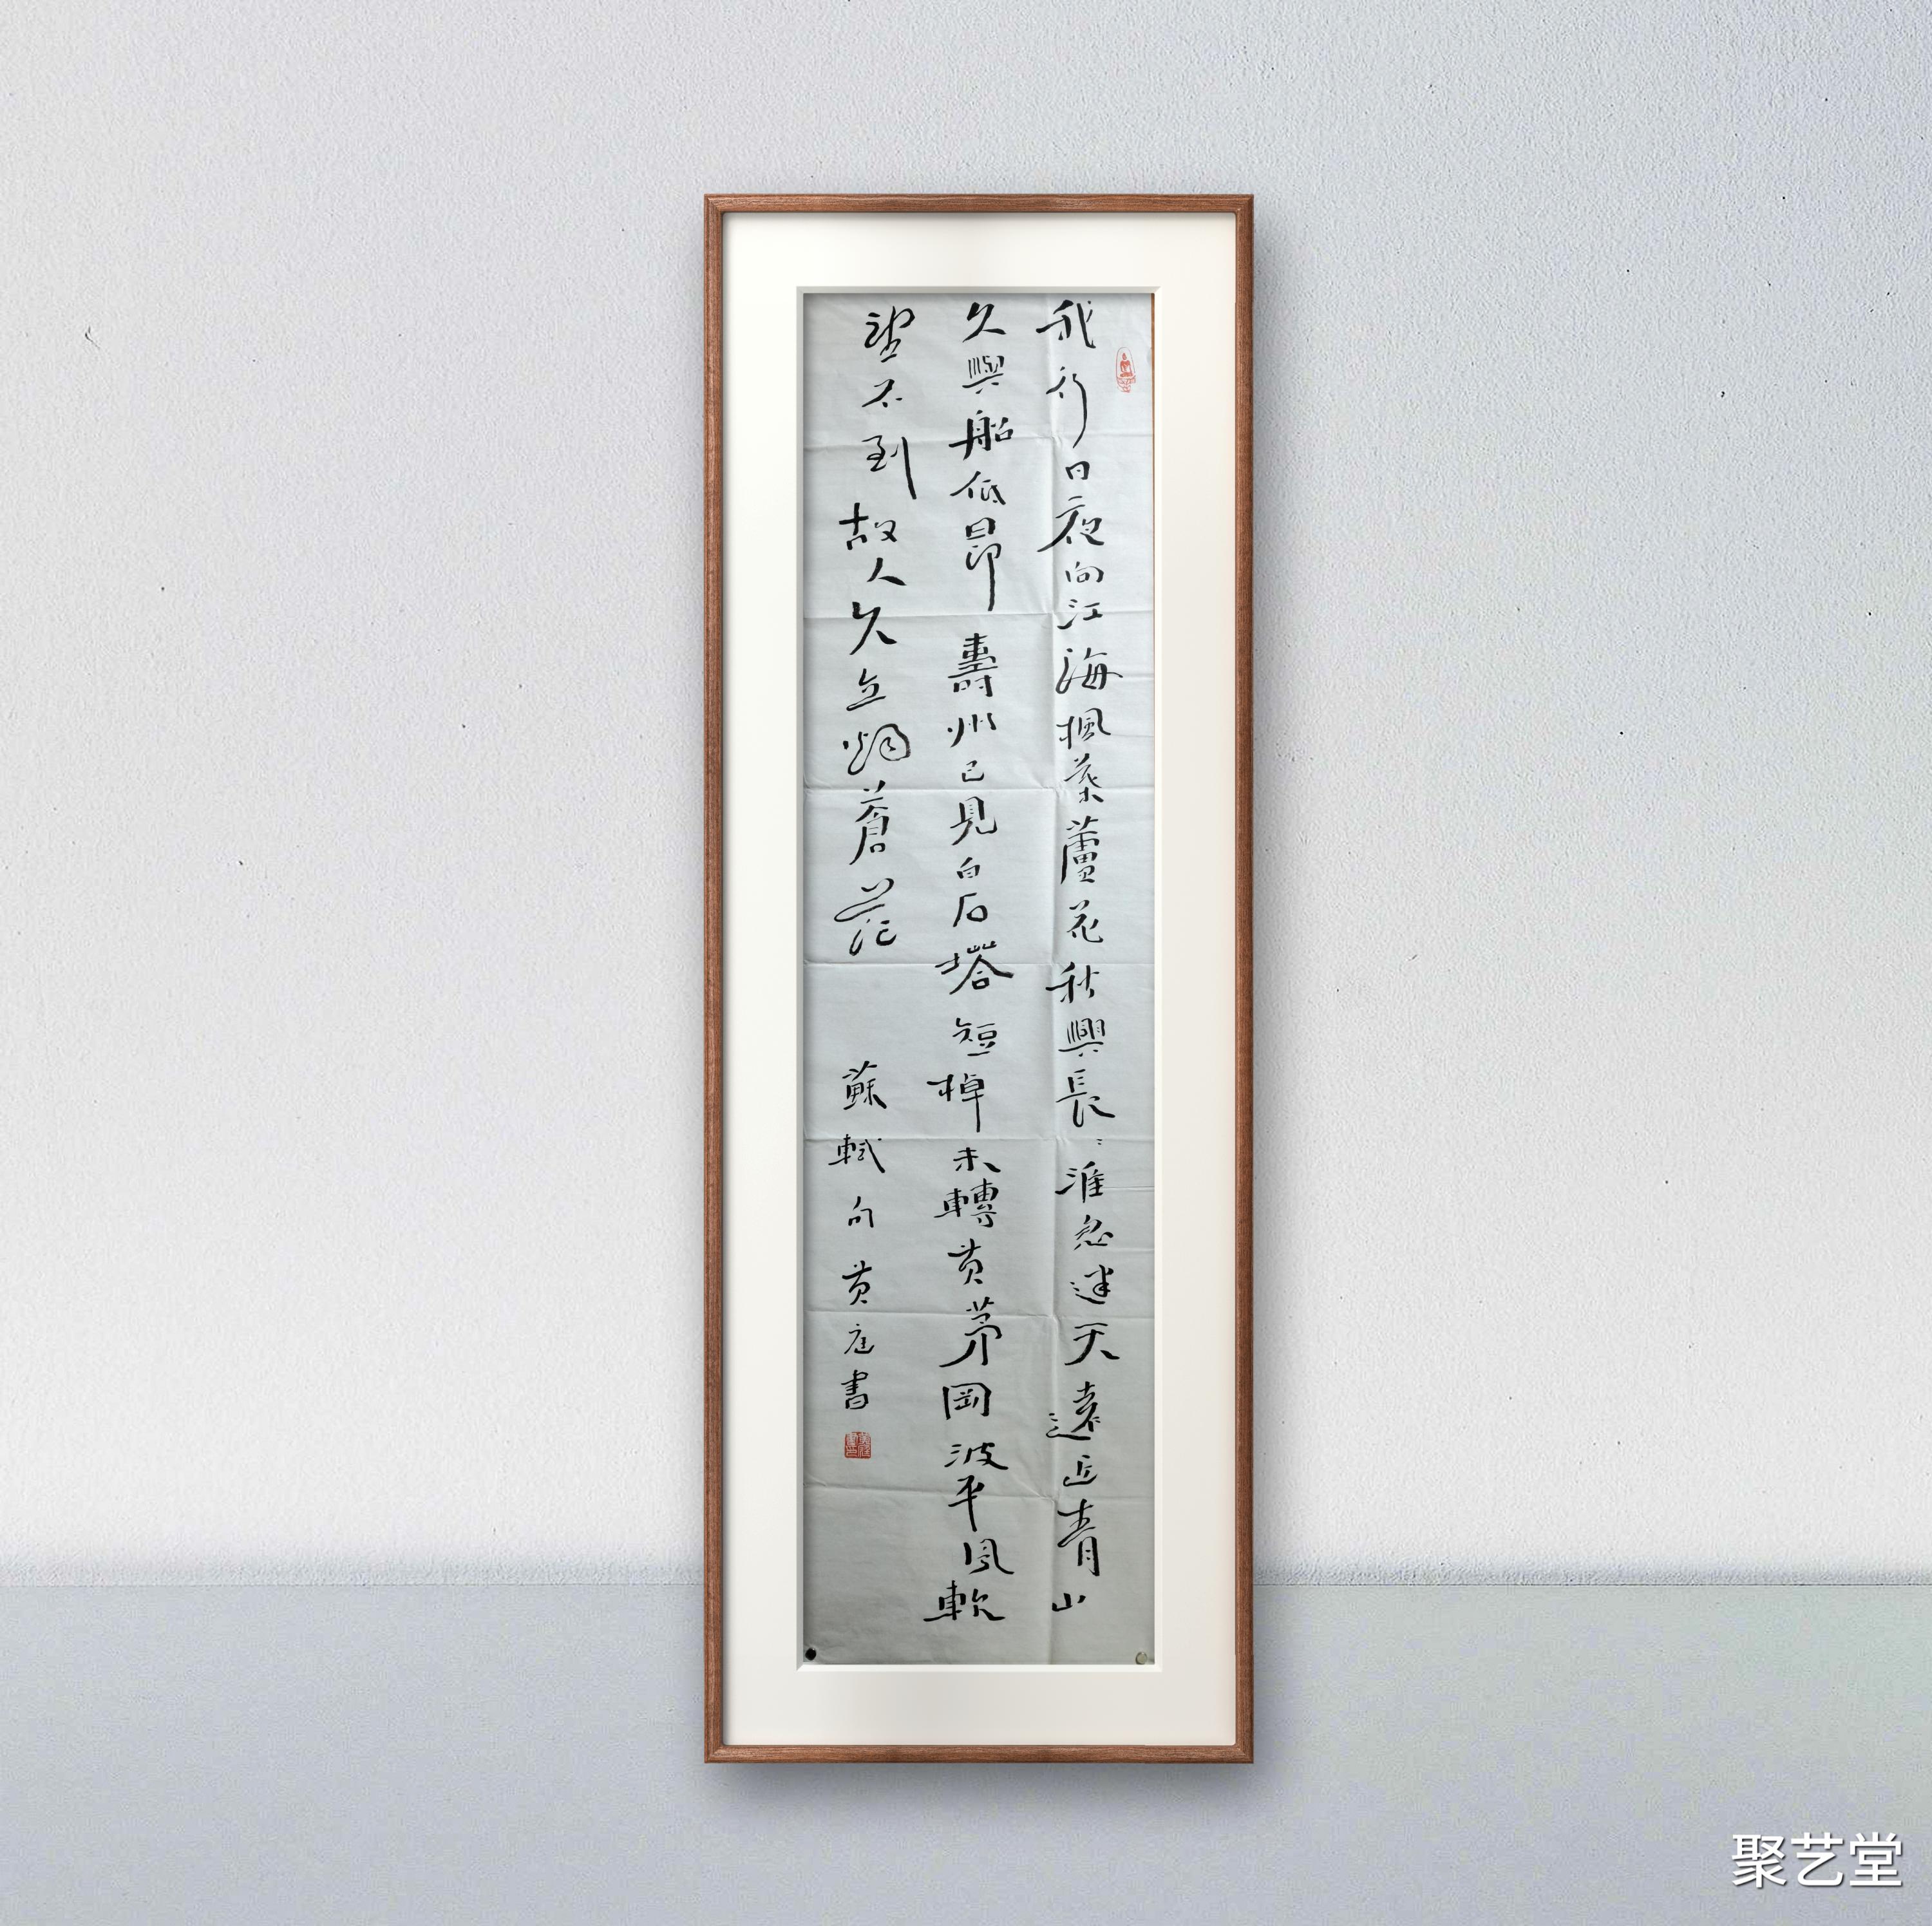 我行日夜向江海楓葉蘆花秋興長〻淮忽迷天遠近青山
久與船低昂壽州已見白石塔短棹未轉黄茅岡波平風軟
望不到故人久立烟蒼茫 蘇軾句黄庭書
聚艺堂